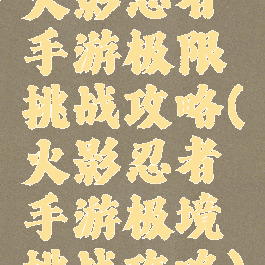 火影忍者
手游极限
挑战攻略(
火影忍者
手游极境
挑战攻略)